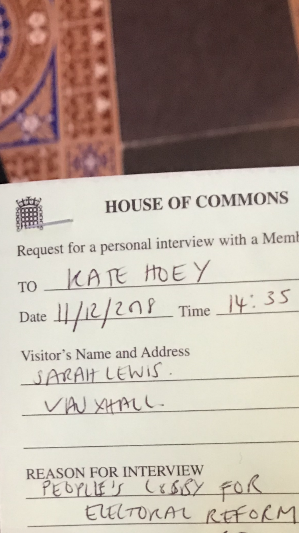 HOUSE OF COMMONS
Request for a personal interview with a Memb
TO KATE HOEY
Date 11/12/2018 Time 14:35
Visitor's Name and Address
SARAH LEWIS.
VAUXHALL.
REASON FOR INTERVIEW
PEOPLE'S LOBBY FOR
ELECTORAL REFORM